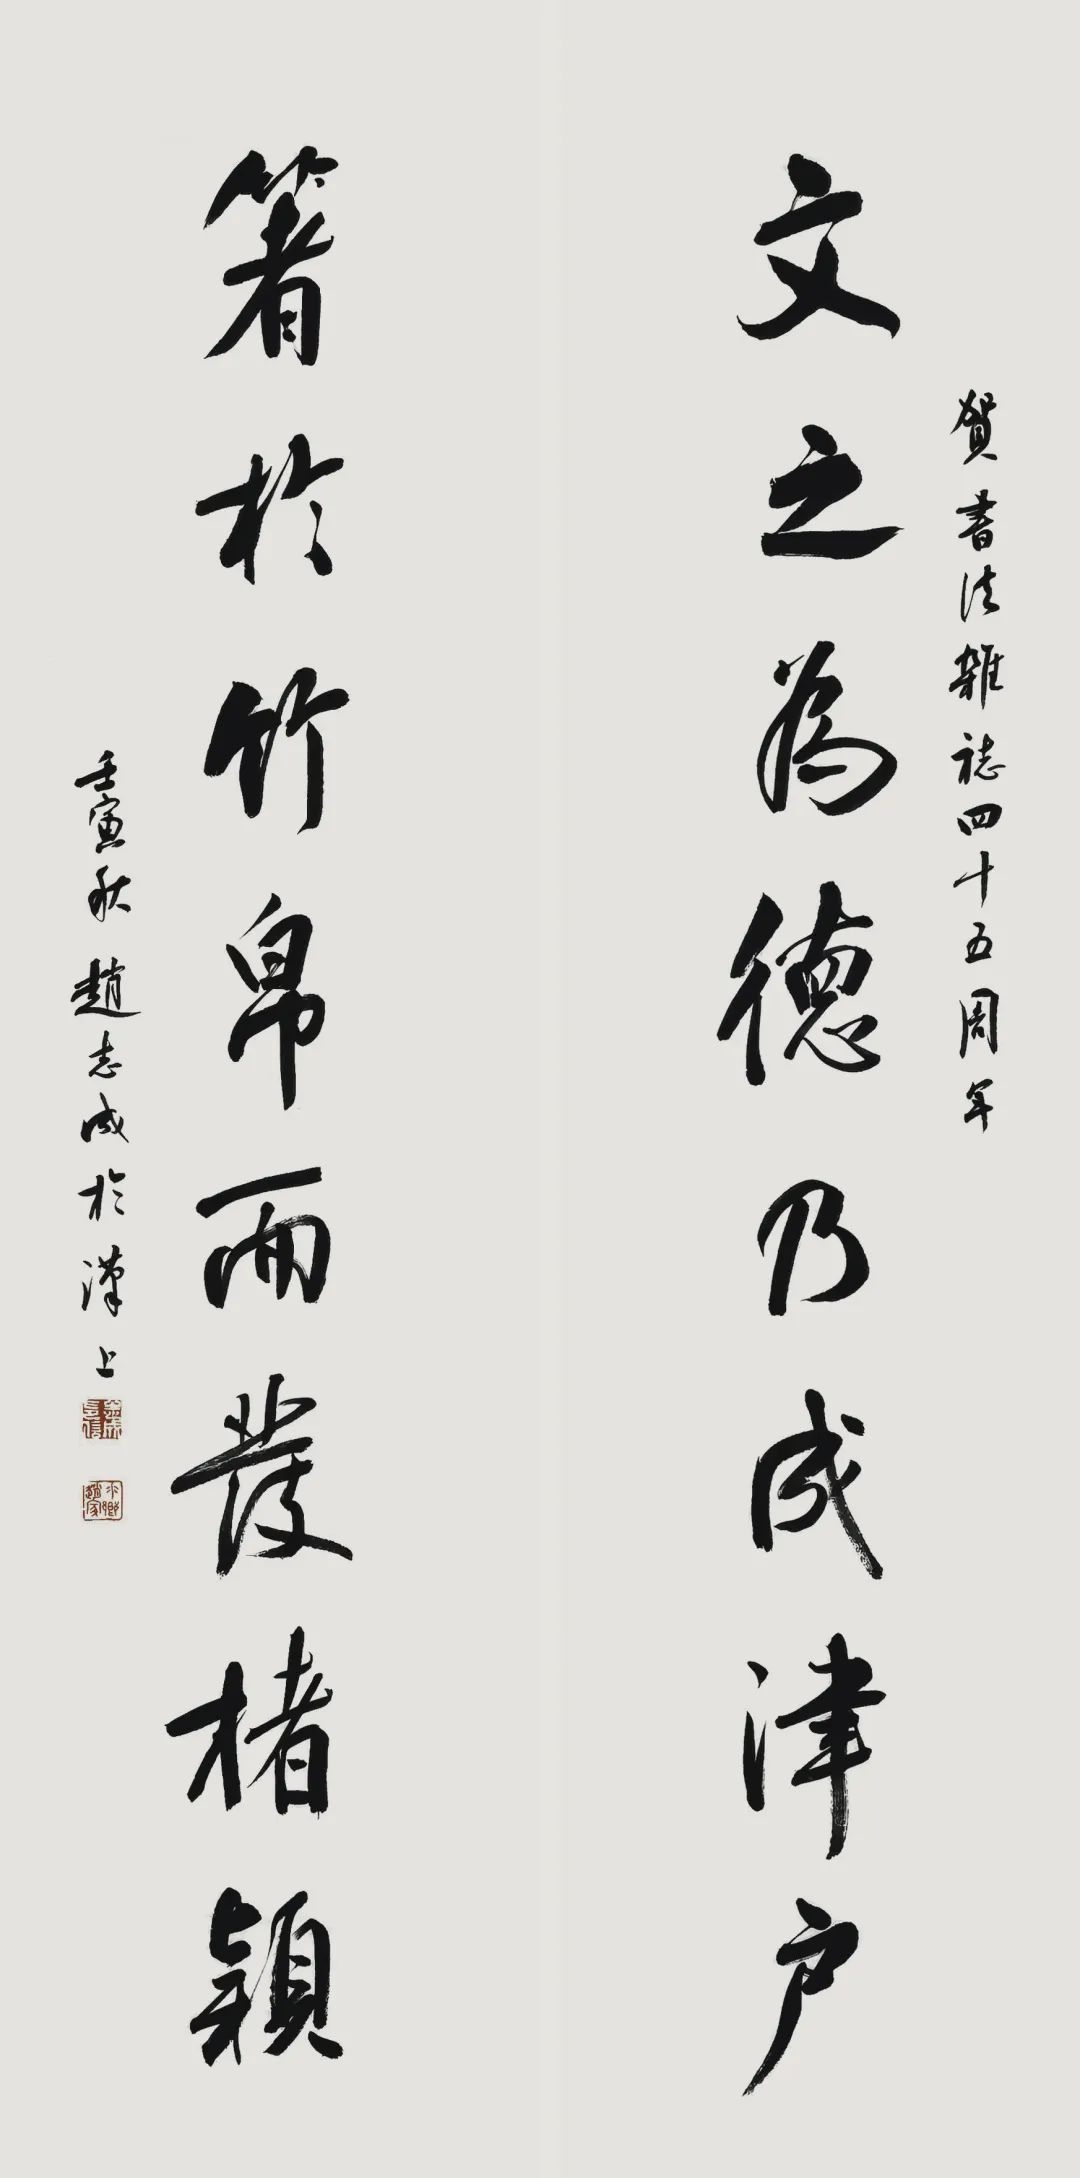 賀書法雜誌四十五周年
文之為德乃成津户
箸於竹帛而發楮穎
壬寅秋趙志成於漢上